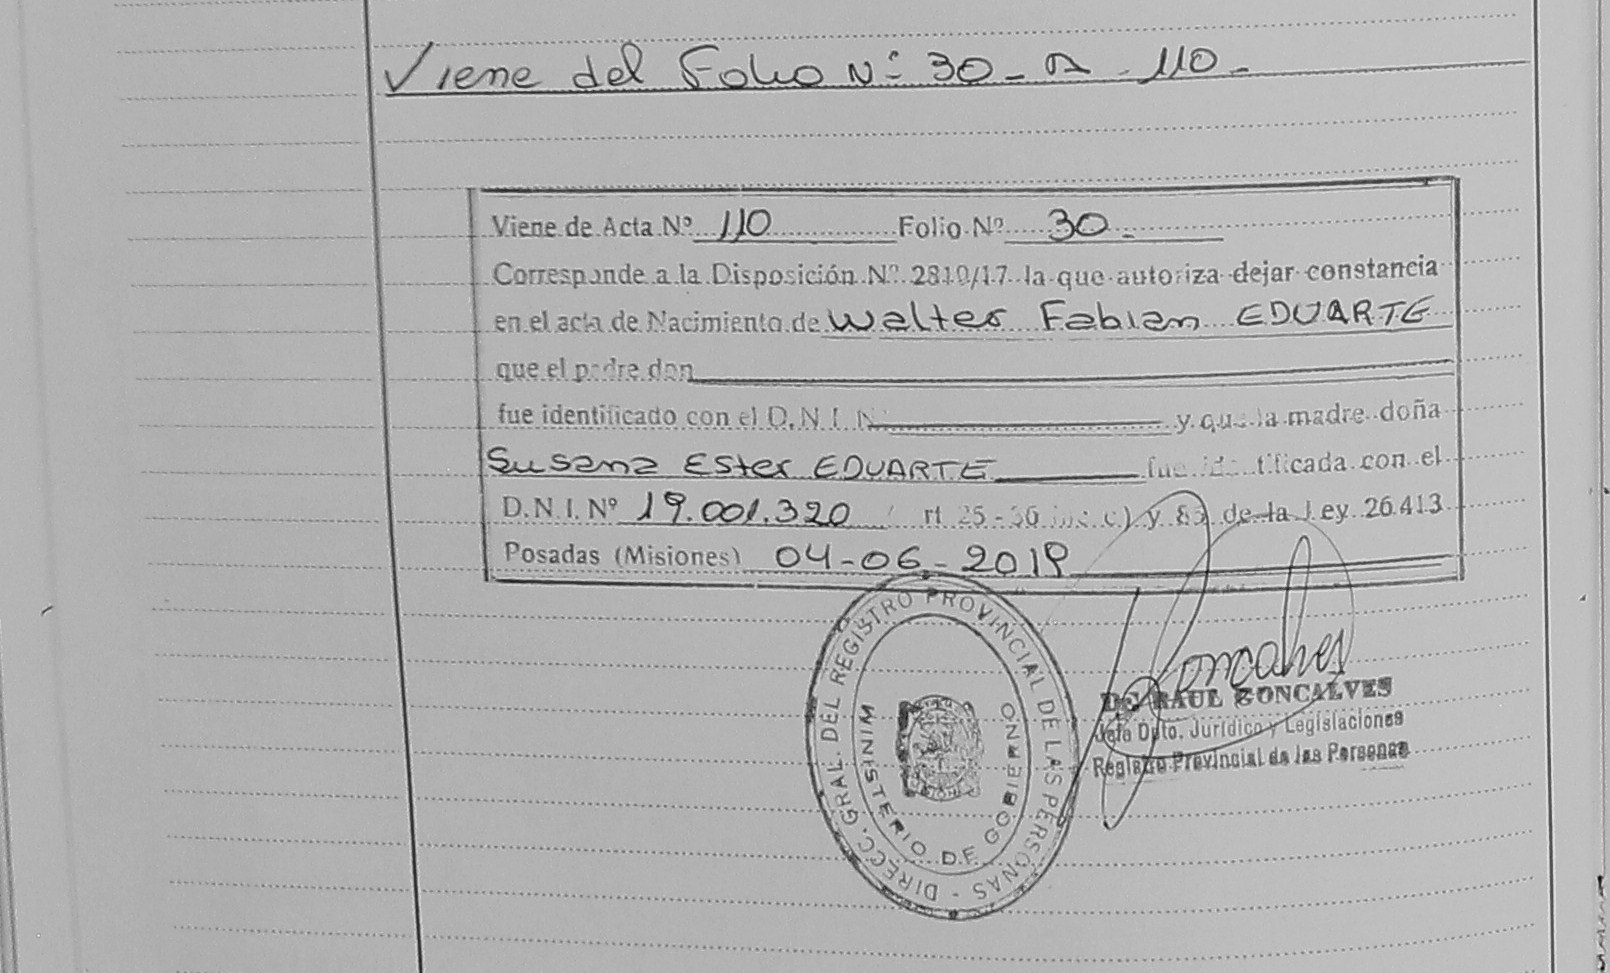 Viene del Folio N° 30 - A - 110 -
Viene de Acta Nº 110 Folio Nº 30 -
Corresponde a la Disposición Nº 2810/17 la que autoriza dejar constancia
en el acta de Nacimiento de Walter Fabian EDUARTE
que el padre don
fue identificado con el D.N.I. N y que la madre doña
Susana Ester EDUARTE fue identificada con el
D.N.I. Nº 19.001.320 rt 25-36 inc c) y 85 de la Ley 26.413
Posadas (Misiones) 04-06-2019
DIRECC. GRAL. DEL REGISTRO PROVINCIAL DE LAS PERSONAS -
MINISTERIO DE GOBIERNO
Goncalves
RAUL GONCALVES
Jefe Dpto. Jurídico y Legislaciones
Registro Provincial de las Personas